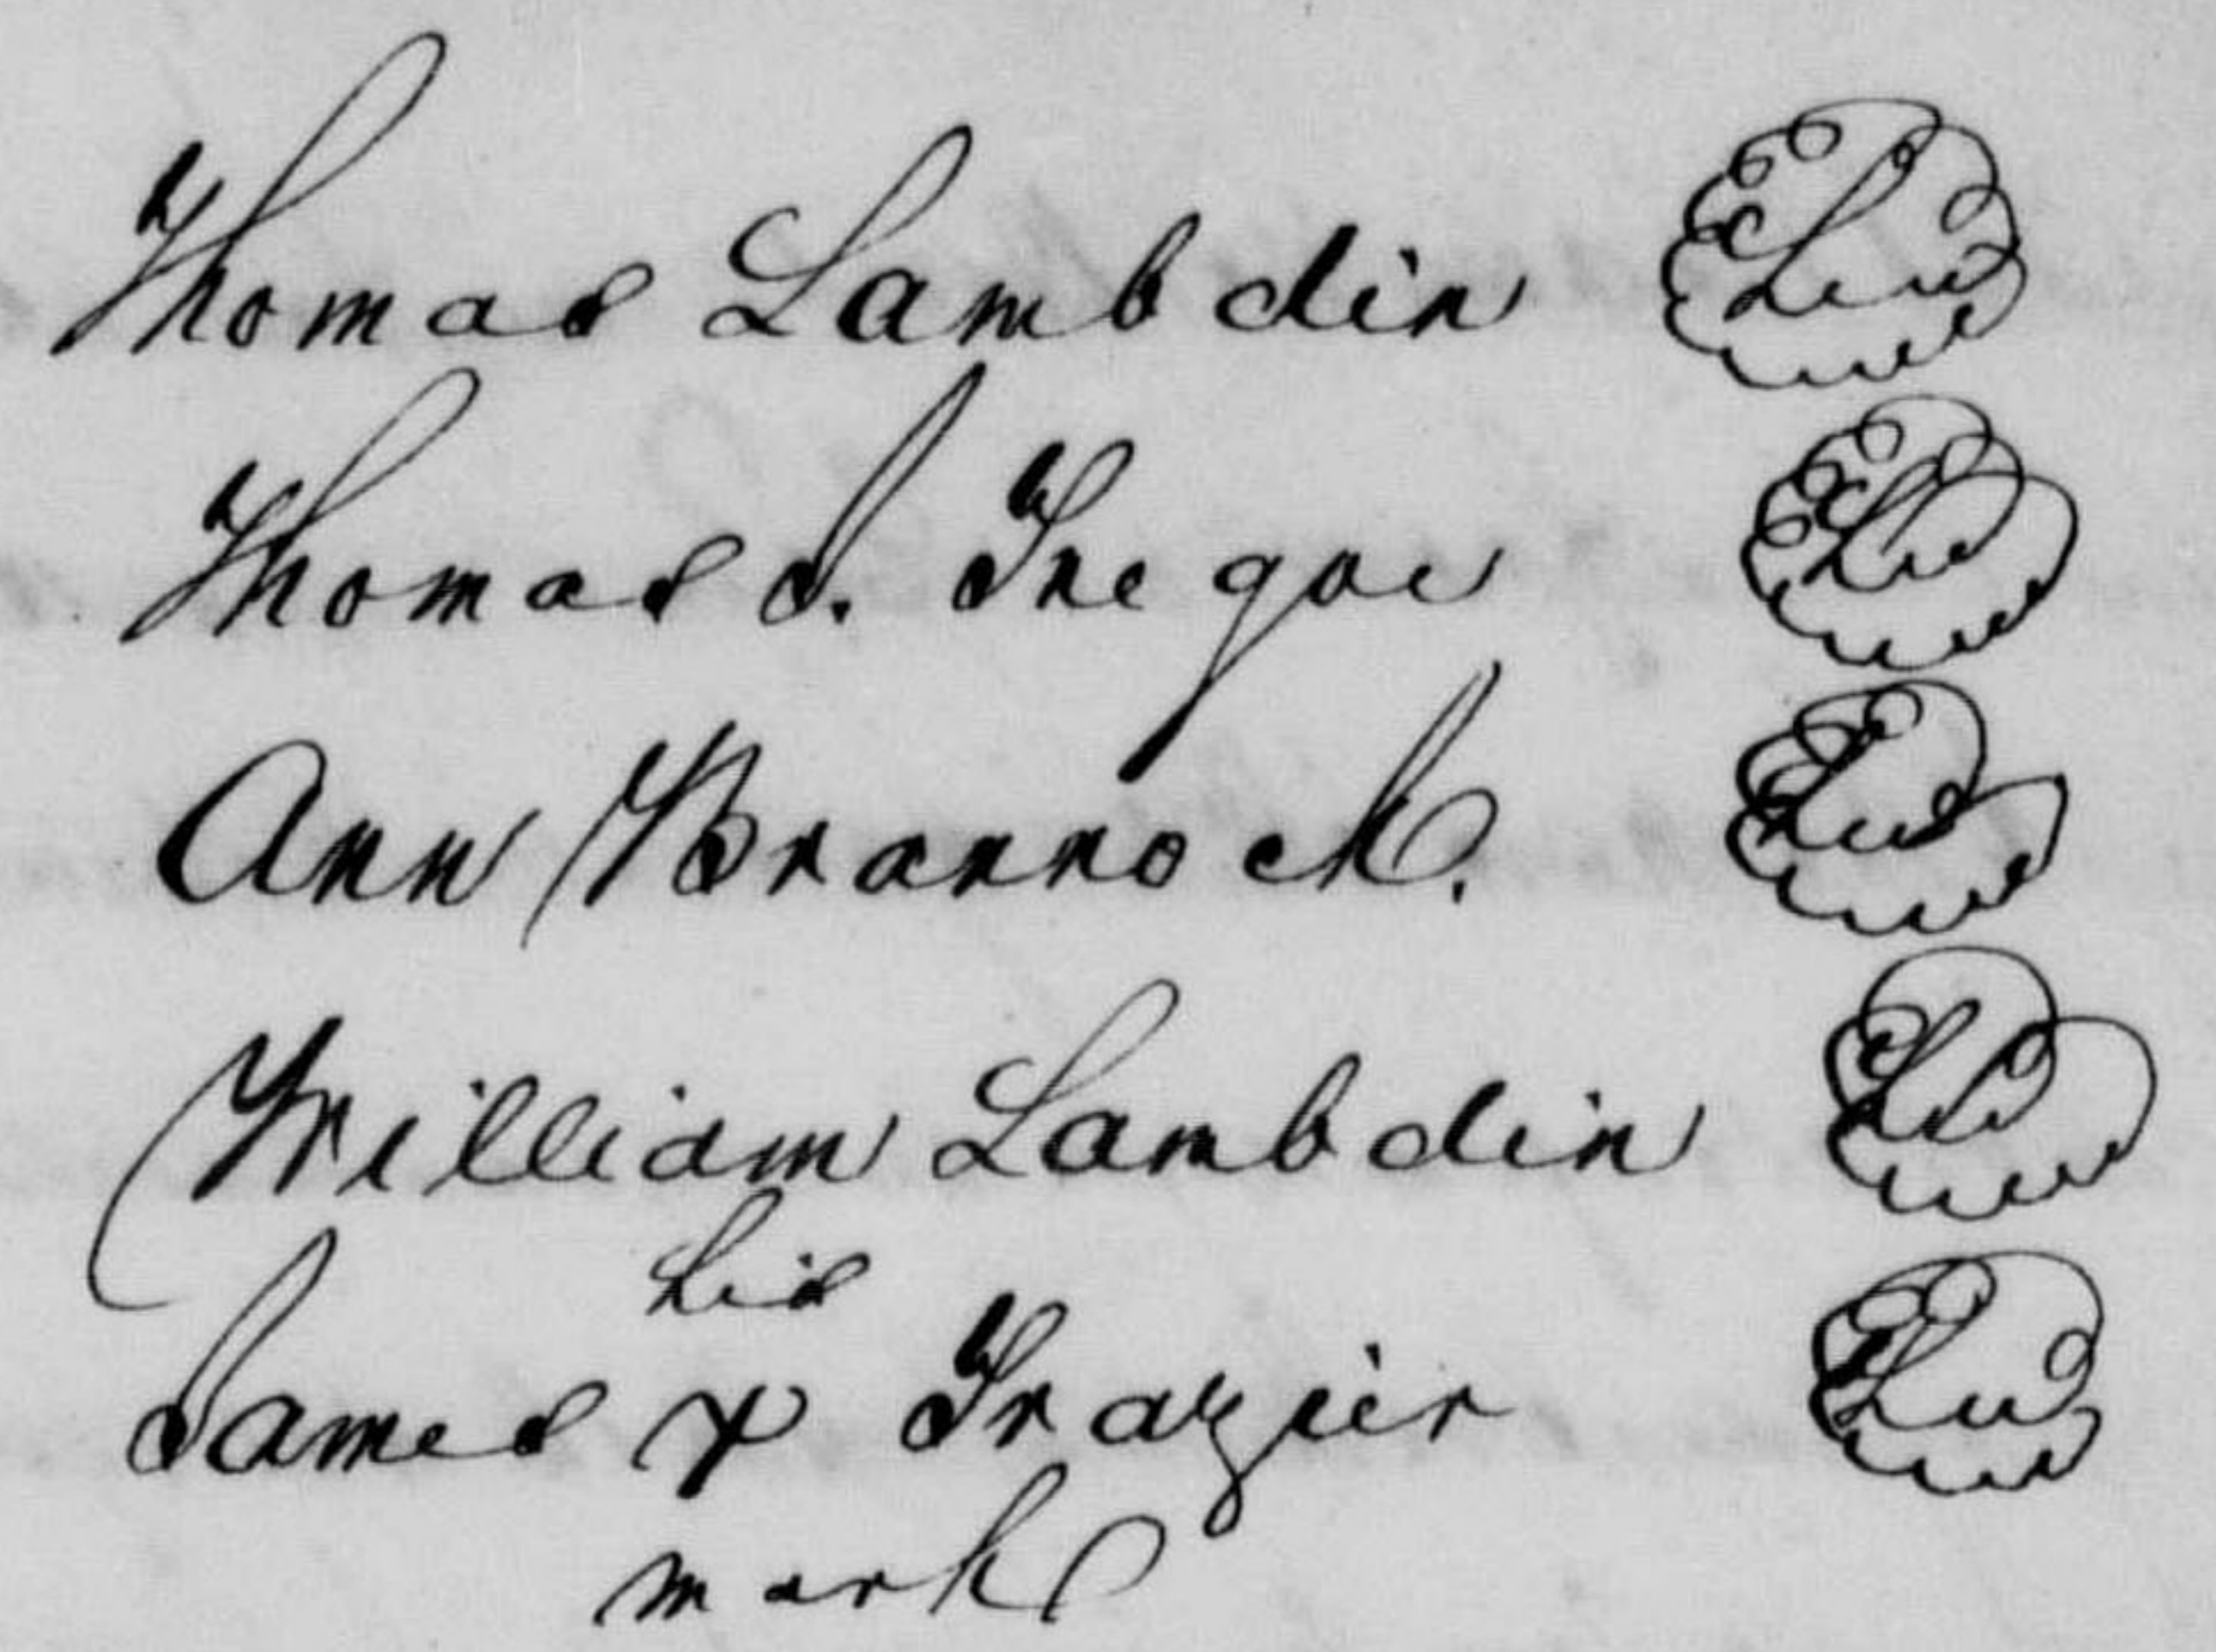 Thomas Lambdin Seal
Thomas S. Tregoe Seal
Ann Brannock. Seal
William Lambdin Seal
his
James x Frazier Seal
mark